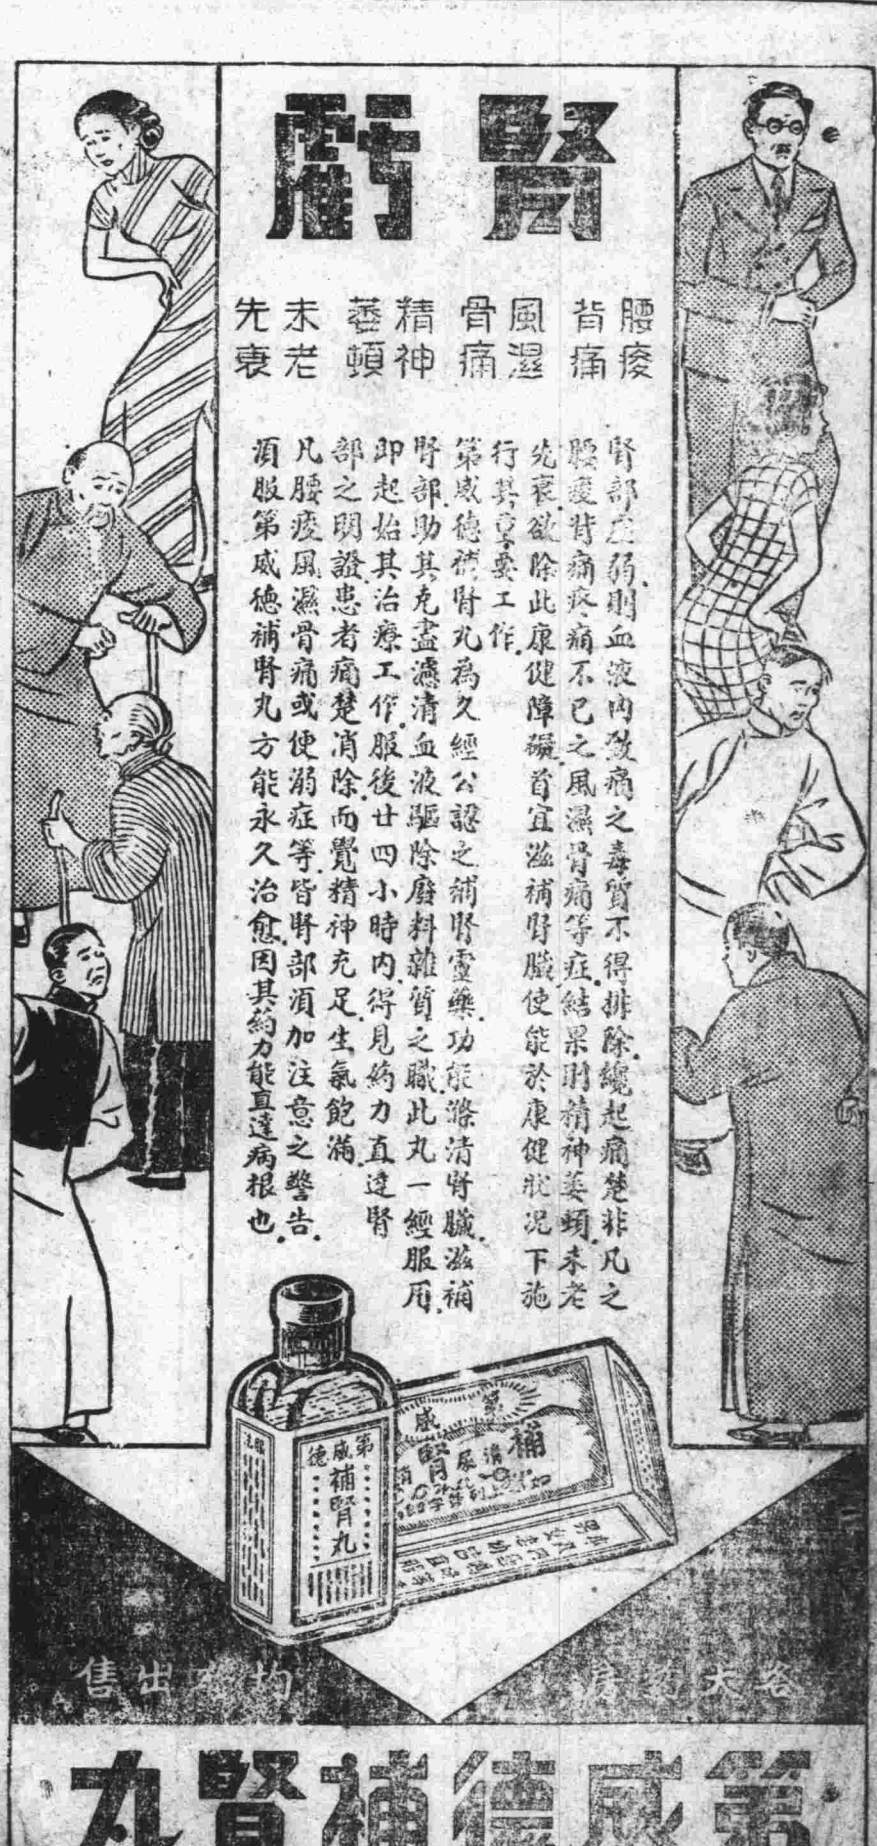 腎虧
腰痠背痛
風濕骨痛
精神萎頓
未老先衰
腎部虛弱.則血液內致痛之毒質不得排除.纔起痛楚非凡之
腰痠背痛疼痛不已之風濕骨痛等症.結果則精神萎頓.未老
先衰欲除此康健障礙.首宜滋補腎臟使能於康健狀况下施
行其重要工作.
第威德補腎丸為久經公認之補腎靈藥.功能滌清腎臟.滋補
腎部助其充盡濾清血液驅除廢料雜質之職此丸一經服用.
即起始其治療工作.服後廿四小時內.得見約力直達腎
部之明證.患者痛楚消除.而覺精神充足.生氣飽滿.
凡腰痠風濕骨痛或便溺症等.皆腎部須加注意之警告.
須服第威德補腎丸方能永久治愈.因其葯力能直達病根也.
第威德
補腎丸
各大葯房
均有出售
第威德補腎丸